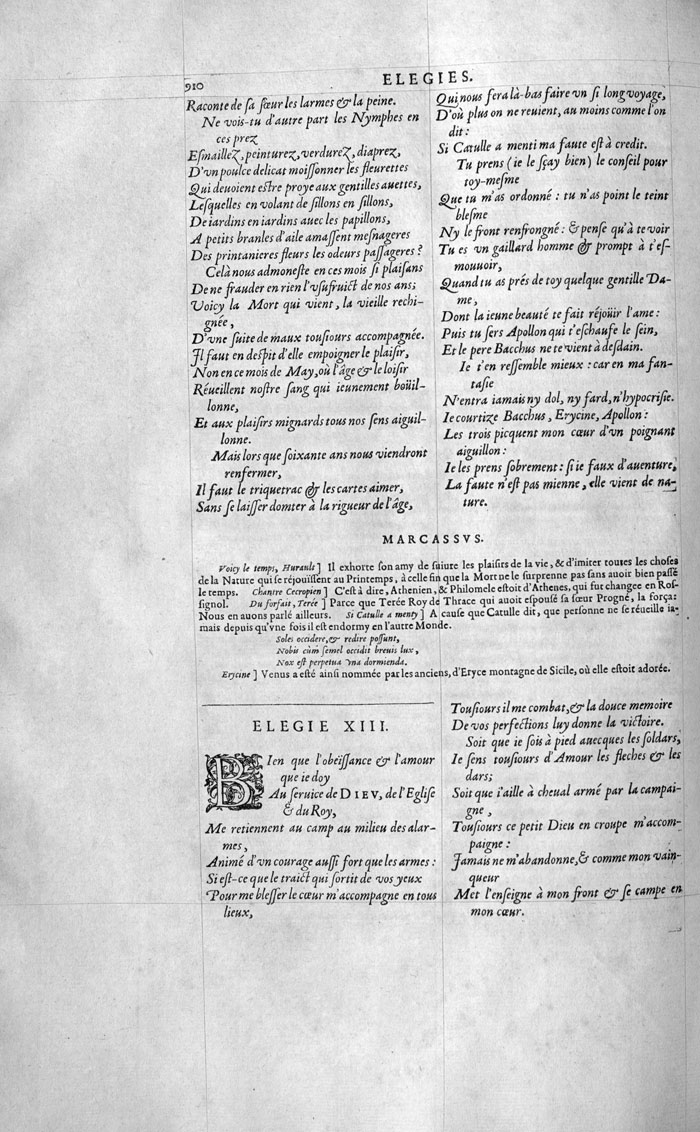 910
ELEGIES.
Raconte de sa sœur les larmes & la peine.
Ne vois-tu d'autre part les Nymphes en
ces prez
Esmaillez, peinturez, verdurez, diaprez,
D'vn poulce delicat moissonner les fleurettes
Qui deuoient estre proye aux gentilles auettes,
Lesquelles en volant de sillons en sillons,
De iardins en iardins auec les papillons,
A petits branles d'aile amassent mesnageres
Des printanieres fleurs les odeurs passageres?
Celà nous admoneste en ces mois si plaisans
De ne frauder en rien l'vsufruict de nos ans;
Voicy la Mort qui vient, la vieille rechi-
gnée,
D'vne suite de maux tousiours accompagnée.
Il faut en despit d'elle empoigner le plaisir,
Non en ce mois de May, où l'âge & le loisir
Réueillent nostre sang qui ieunement boüil-
lonne,
Et aux plaisirs mignards tous nos sens aiguil-
lonne.
Mais lors que soixante ans nous viendront
renfermer,
Il faut le triquetrac & les cartes aimer,
Sans se laisser domter à la rigueur de l'âge,
Qui nous fera là-bas faire vn si long voyage,
D'où plus on ne reuient, au moins comme l'on
dit:
Si Catulle a menti ma faute est à credit.
Tu prens (ie le sçay bien) le conseil pour
toy-mesme
Que tu m'as ordonné: tu n'as point le teint
blesme
Ny le front renfrongné: & pense qu'à te voir
Tu es vn gaillard homme & prompt à t'es-
mouuoir,
Quand tu as prés de toy quelque gentille Da-
me,
Dont la ieune beauté te fait réjoüir l'ame:
Puis tu sers Apollon qui t'eschaufe le sein,
Et le pere Bacchus ne te vient à desdain.
Ie t'en ressemble mieux: car en ma fan-
tasie
N'entra iamais ny dol, ny fard, n'hypocrisie.
Ie courtize Bacchus, Erycine, Apollon:
Les trois picquent mon cœur d'vn poignant
aiguillon:
Ie les prens sobrement: si ie faux d'auenture,
La faute n'est pas mienne, elle vient de na-
ture.
MARCASSVS.
Voicy le temps, Hurault] Il exhorte son amy de suiure les plaisirs de la vie, & d'imiter toutes les choses
de la Nature qui se réjouïssent au Printemps, à celle fin que la Mort ne le surprenne pas sans auoir bien passé
le temps. Chantre Cecropien] C'est à dire, Athenien, & Philomele estoit d'Athenes, qui fut changee en Ros-
signol. Du forfait, Terée] Parce que Terée Roy de Thrace qui auoit espousé sa sœur Progné, la força:
Nous en auons parlé ailleurs. Si Catulle a menty] A cause que Catulle dit, que personne ne se réueille ia-
mais depuis qu'vne fois il est endormy en l'autre Monde.
Soles occidere, & redire possunt,
Nobis cùm semel occidit breuis lux,
Nox est perpetua vna dormienda.
Erycine] Venus a esté ainsi nommée par les anciens, d'Eryce montagne de Sicile, où elle estoit adorée.
ELEGIE XIII.
Bien que l'obeïssance & l'amour
que ie doy
Au seruice de DIEV, de l'Eglise
& du Roy,
Me retiennent au camp au milieu des alar-
mes,
Animé d'vn courage aussi fort que les armes:
Si est-ce que le traict qui sortit de vos yeux
Pour me blesser le cœur m'accompagne en tous
lieux,
Tousiours il me combat, & la douce memoire
De vos perfections luy donne la victoire.
Soit que ie sois à pied auecques les soldars,
Ie sens tousiours d'Amour les fleches & les
dars;
Soit que i'aille à cheual armé par la campai-
gne,
Tousiours ce petit Dieu en croupe m'accom-
paigne:
Jamais ne m'abandonne, & comme mon vain-
queur
Met l'enseigne à mon front & se campe en
mon cœur.